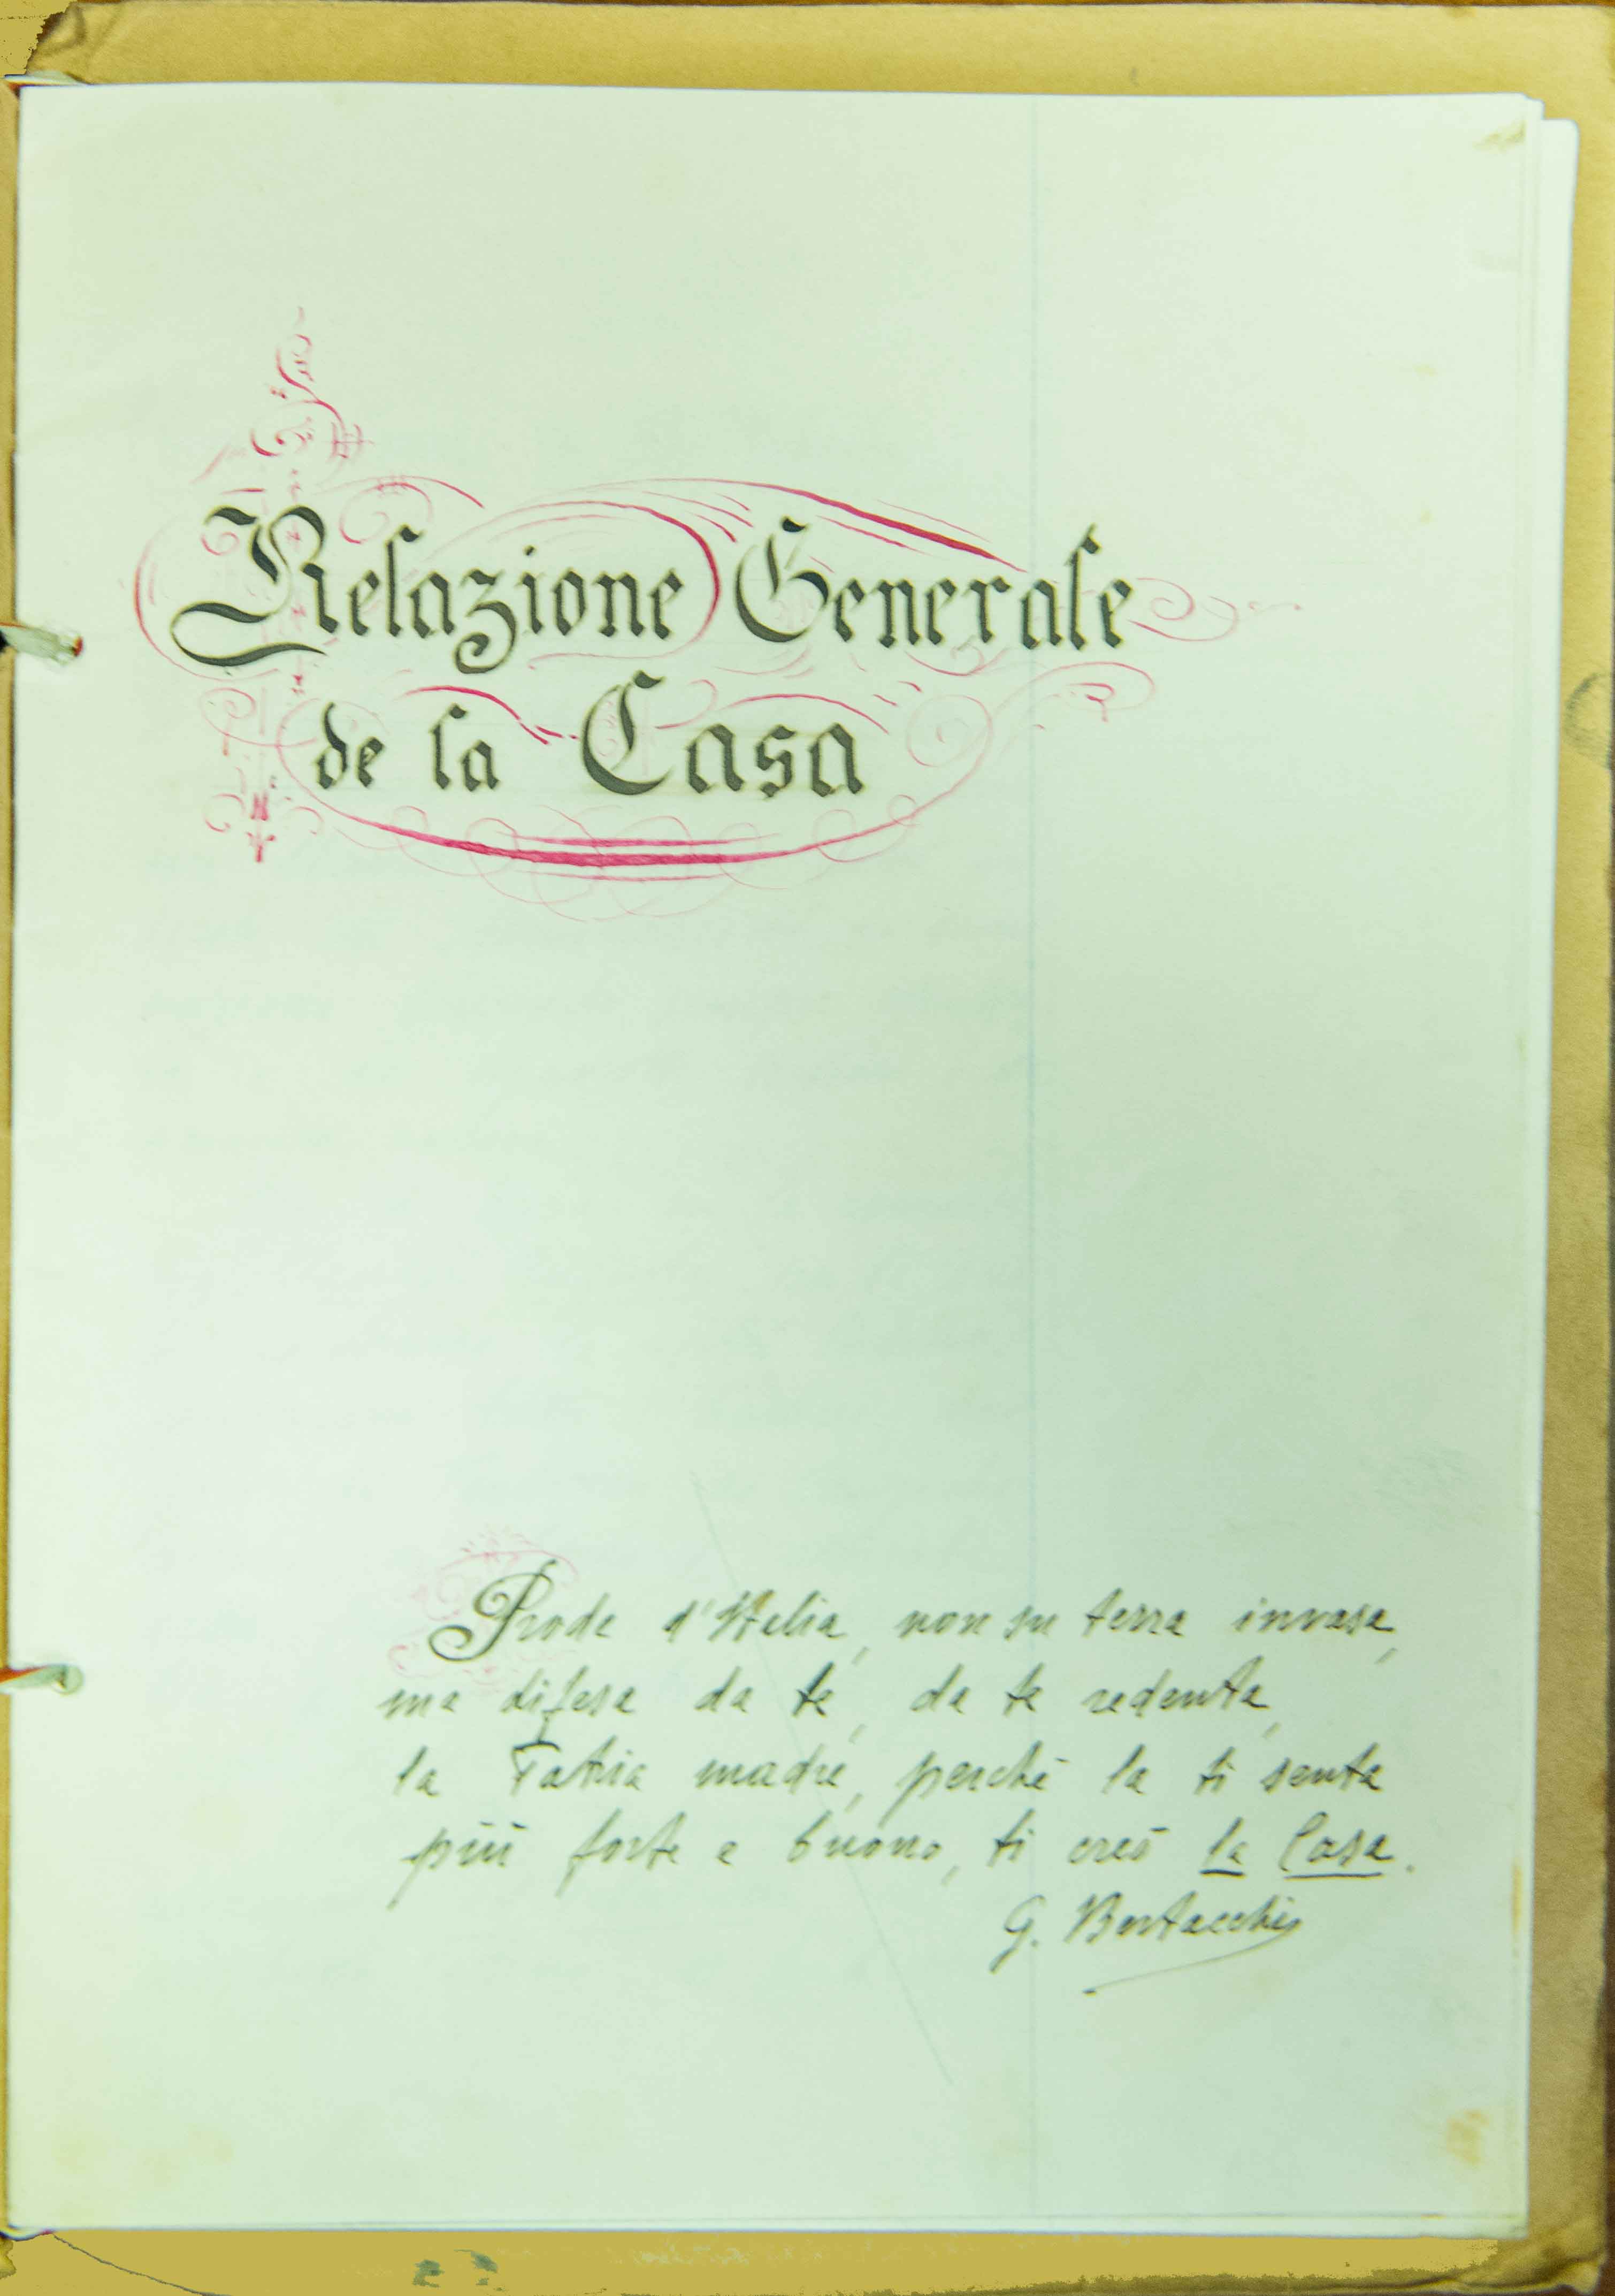 Relazione Generale
de la Casa
Prode d'Italia, non su terra invasa,
ma difesa da te, da te redenta,
la Patria madre, perchè la ti senta
più forte e buono, ti creò la Casa.
G. Bertacchi